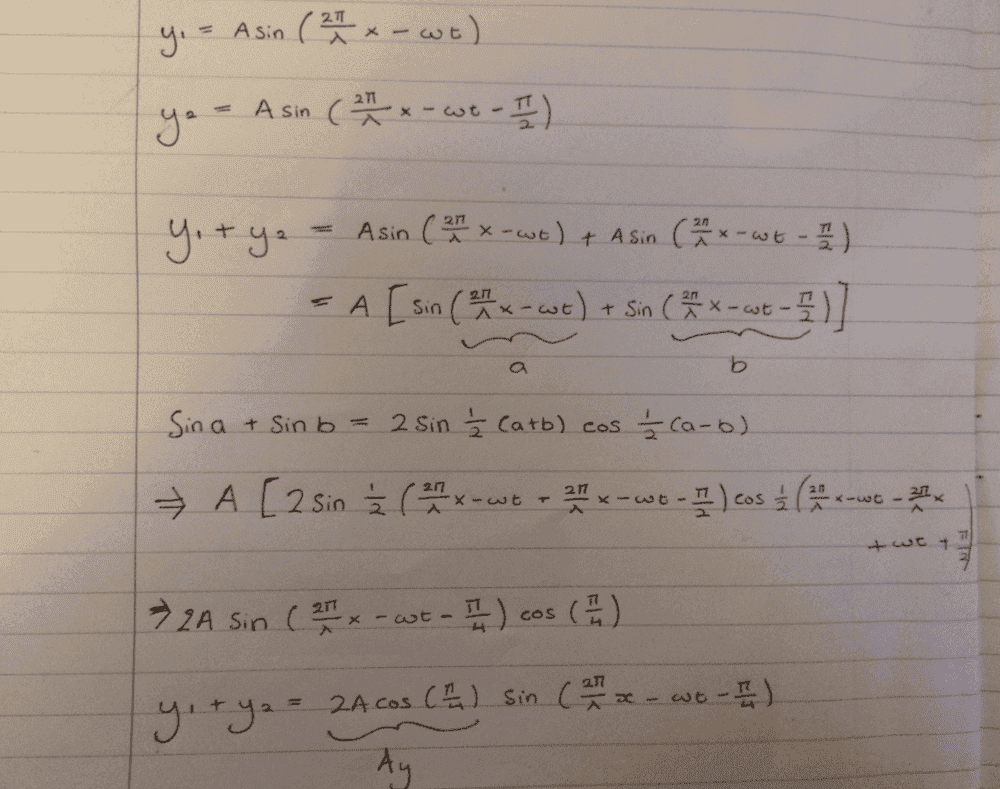 y₁ = A sin (2π/λ x - ωt)
y₂ = A sin (2π/λ x - ωt - π/2)
y₁ + y₂ = A sin (2π/λ x - ωt) + A sin (2π/λ x - ωt - π/2)
= A [ sin (2π/λ x - ωt) + sin (2π/λ x - ωt - π/2) ]
a b
Sin a + Sin b = 2 Sin 1/2 (a+b) cos 1/2 (a-b)
⇒ A [ 2 sin 1/2 (2π/λ x - ωt + 2π/λ x - ωt - π/2) cos 1/2 (2π/λ x - ωt - 2π/λ x
+ ωt + π/2)
⇒ 2A sin (2π/λ x - ωt - π/4) cos (π/4)
y₁ + y₂ = 2A cos (π/4) sin (2π/λ x - ωt - π/4)
Ay